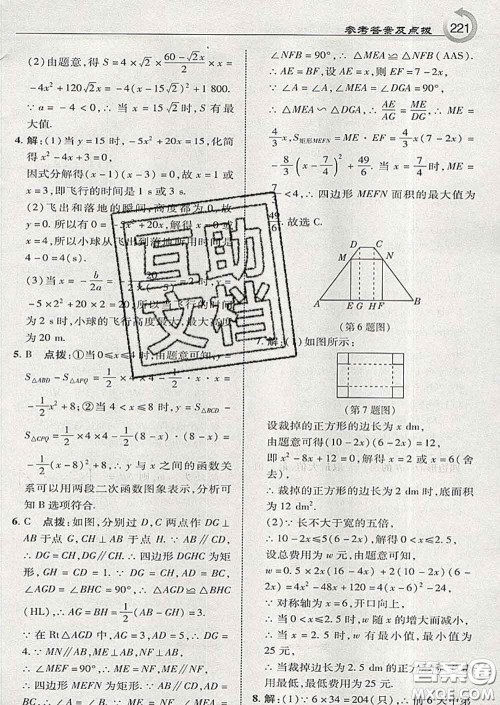 参考答案及点拨 221
(2)由题意,得 S = 4×√2 x × (60-√2x)/2 ×
-4x²+120√2 x = -4(x-15√2)²+
∵ a = -4<0, ∴ 当 x = 15√2 时, S 有最
大值.
4. 解:(1)当 y=15 时, -5x²+20x=15, 化简
得 x²-4x+3=0,
因式分解得(x-1)(x-3)=0, ∴ x=1 或
3, 即飞行的时间是 1 s 或 3 s.
(2)飞出和落地的瞬间,高度都为 0, 故
y=0. 所以有 0=-5x²+20x, 解得 x=0 或
4, 所以小球从飞出到落地所用时间是
4-0=4(s).
(3)当 x = -b/2a =
-5×2²+20×2=20, 所以当飞行时间
为 2 s 时,小球的飞行高度最大,最大高度为
20 m.
5. B 点拨:①当 0≤x≤4 时,由题意可知 y=
S△ABD - S△APQ =
1/2 x²+8; ②当 4<x≤8 时, y = S△BCD -
S△CPQ = 1/2×4×4-1/2(8-x)(8-x)=
-1/2(8-x)²+8. ∴ y 与 x 之间的函数关
系可以用两段二次函数图象表示,分析可
知 B 选项符合.
6. C 点拨:如图,分别过 D, C 两点作 DG⊥
AB 于点 G, CH⊥AB 于点 H. ∵ AB∥CD,
∴ DG=CH, DG∥CH. ∴ 四边形 DGHC 为矩
形, GH=CD=1. ∵ DG=CH, AD=BC,
∠AGD=∠BHC=90°, ∴ △AGD≌△BHC
(HL), ∴ AG=BH= =3.
∵ 在 Rt△AGD 中, AG=3, AD=5, ∴ DG=
4. ∵ MN∥AB, ME⊥AB, NF⊥AB,
∴ ∠MEF=90°, ∴ ME=NF, ME∥NF,
∴ 四边形 MEFN 为矩形. ∵ AB∥CD, AD=
BC, ∴ ∠A=∠B. ∵ ME=NF, ∠MEA=
∠NFB=90°, ∴ △MEA≌△NFB(AAS).
∴ AE=BF, 设 AE=x, 则 EF=7-2x.
∵ ∠A=∠A, ∠MEA=∠DGA=90°,
∴ △MEA∽△DGA. ∴ AE/AG = ME/DG. ∴ ME=
4/3 x, S矩形MEFN = ME·EF = 4/3 x(7-2x) =
-8/3(x-7/4)²+49/6. 当 x=7/4 时, ME=
7/3<4, ∴ 四边形 MEFN 面积的最大值为
49/6. 故选 C.
D C
M N
A E G H F B
(第 6 题图)
7. 解:(1)如图所示:
(第 7 题图)
设裁掉的正方形的边长为 x dm,
由题意可得(10-2x)(6-2x)=12,
即 x²-8x+12=0, 解得 x=2 或 x=6(舍
去),
∴ 裁掉的正方形的边长为 2 dm, 底面积为
12 dm².
(2)∵ 长不大于宽的五倍,
∴ 10-2x≤5(6-2x), 解得 0<x≤2.5,
设总费用为 w 元,由题意可得
w=0.5×2x(16-4x)+2(10-2x)(6-
2x)=4x²-48x+120=4(x-6)²-24,
∵ 对称轴为 x=6, 开口向上,
∴ 当 0<x≤2.5 时, w 随 x 的增大而减小,
∴ 当 x=2.5 时, w 有最小值,最小值为
25 元.
∴ 当裁掉边长为 2.5 dm 的正方形时,
总费用最低,最低为 25 元.
8. 解:(1)∵ 6×34=204(只), ∴ 前 6 天中第
互助文档